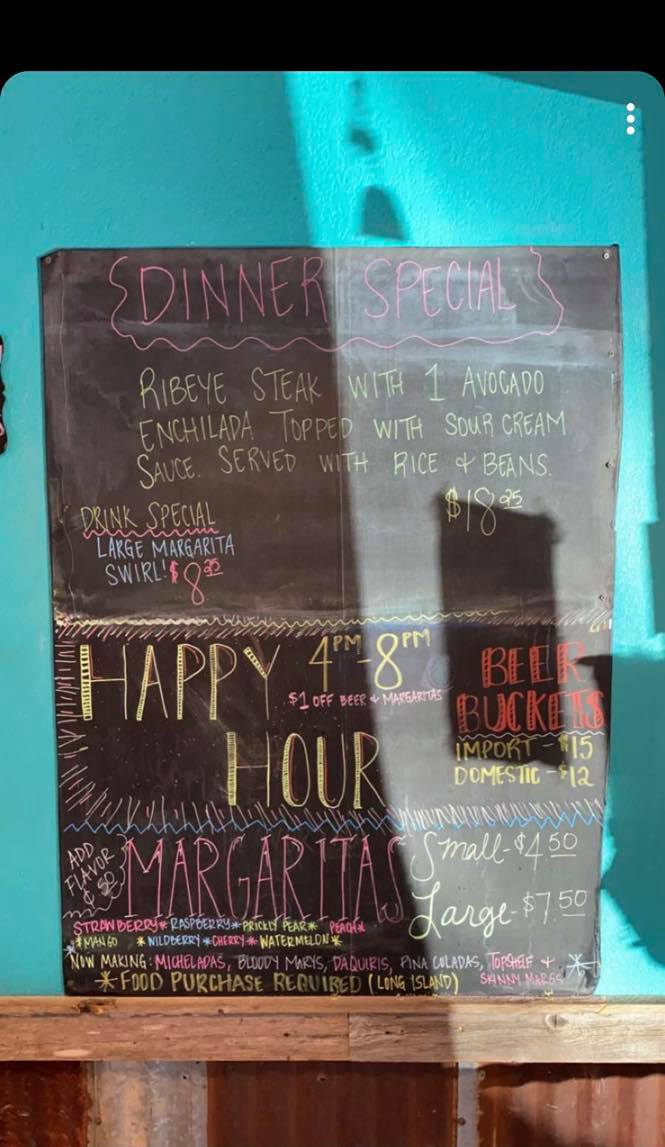 DINNER SPECIAL
RIBEYE STEAK WITH 1 AVOCADO
ENCHILADA TOPPED WITH SOUR CREAM
SAUCE. SERVED WITH RICE & BEANS.
$18.95
DRINK SPECIAL
LARGE MARGARITA
SWIRL! $8.25
HAPPY 4PM-8PM
$1 OFF BEER & MARGARITAS
HOUR
BEER
BUCKETS
IMPORT - $15
DOMESTIC - $12
ADD
FLAVOR
$.50
MARGARITAS
Small - $4.50
Large - $7.50
STRAWBERRY * RASPBERRY * PRICKLY PEAR * PEACH *
* MANGO * WILDBERRY * CHERRY * WATERMELON *
NOW MAKING: MICHELADAS, BLOODY MARYS, DAQUIRIS, PINA COLADAS, TOPSHELF &
SKINNY MARGS
* FOOD PURCHASE REQUIRED (LONG ISLAND)